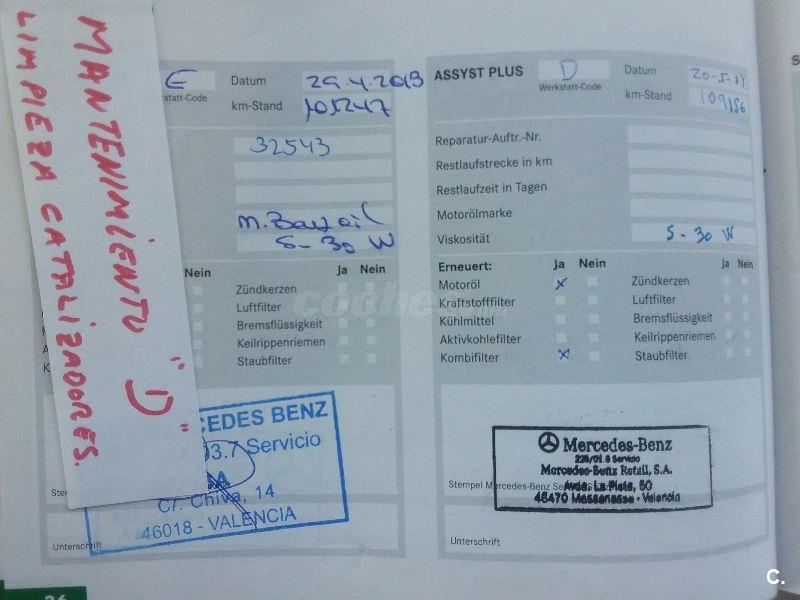 MANTENIMIENTO "D"
LIMPIEZA CATALIZADORES.
E
Datum 29.4.2013
statt-Code
km-Stand 105247
32543
5-30 W
Nein
Ja Nein
Zündkerzen
Luftfilter
Bremsflüssigkeit
Keilriemen
Staubfilter
CEDES BENZ
03.7 Servicio
C/. Chiva, 14
46018 - VALENCIA
Unterschrift
ASSYST PLUS D
Werkstatt-Code
Datum 20-5-14
km-Stand 109156
Reparatur-Auftr.-Nr.
Restlaufstrecke in km
Restlaufzeit in Tagen
Motorölmarke
Viskosität 5-30 W
Erneuert: Ja Nein
Ja Nein
Motoröl x
Zündkerzen
Kraftstofffilter
Luftfilter
Kühlmittel
Bremsflüssigkeit
Aktivkohlefilter
Keilrippenriemen
Kombifilter x
Staubfilter
Mercedes-Benz
Mercedes-Benz Retail, S.A.
Avda. La Plata, 50
Stempel Mercedes-Benz
46470 Massanassa - Valencia
Unterschrift
26
C.